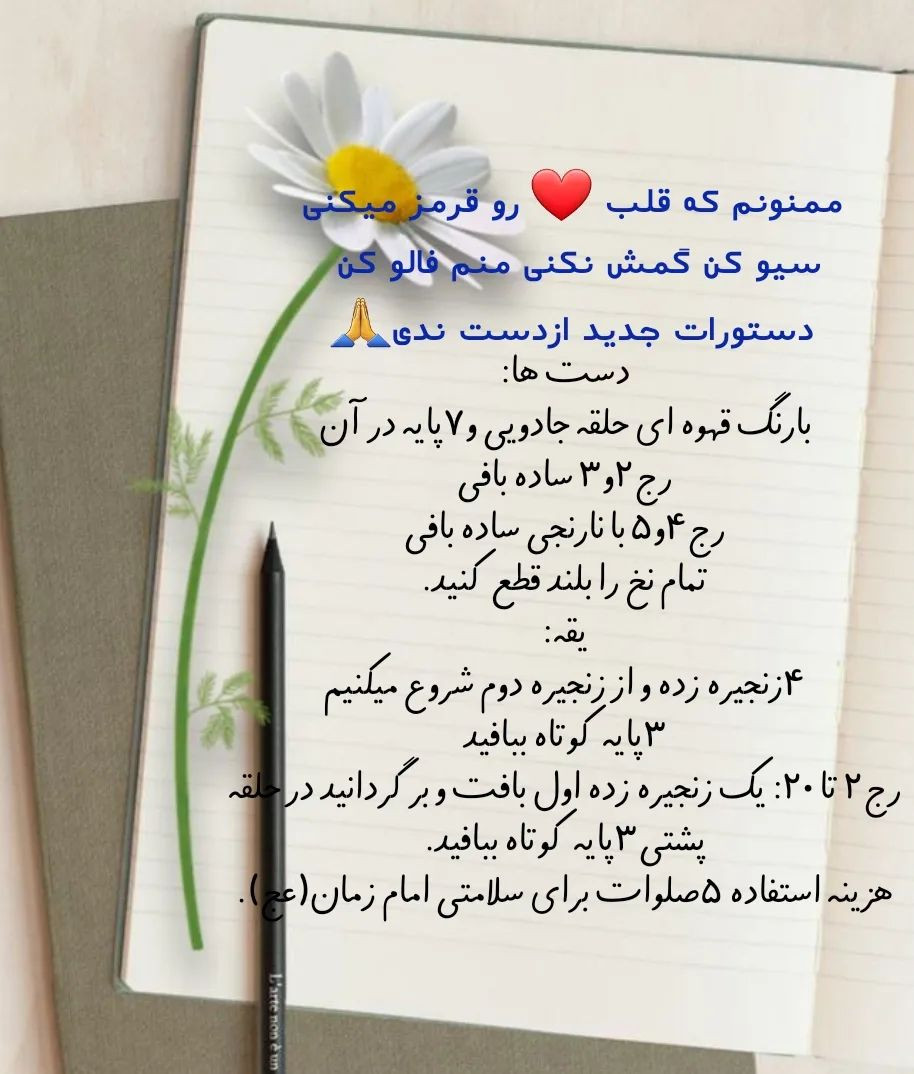 ممنونم که قلب ❤️ رو قرمز میکنی
سیو کن گمش نکنی منم فالو کن
دستورات جدید ازدست ندی🙏
دست ها:
بارنگ قهوه ای حلقه جادویی و۷پایه در آن
رج ۲و۳ ساده بافی
رج ۴و۵ با نارنجی ساده بافی
تمام نخ را بلند قطع کنید.
یقه:
۴زنجیره زده و از زنجیره دوم شروع میکنیم
۳پایه کوتاه ببافید
رج ۲ تا ۲۰: یک زنجیره زده اول بافت و بر گردانید در حلقه
پشتی ۳پایه کوتاه ببافید.
هزینه استفاده ۵صلوات برای سلامتی امام زمان(عج).
L'arte non è un